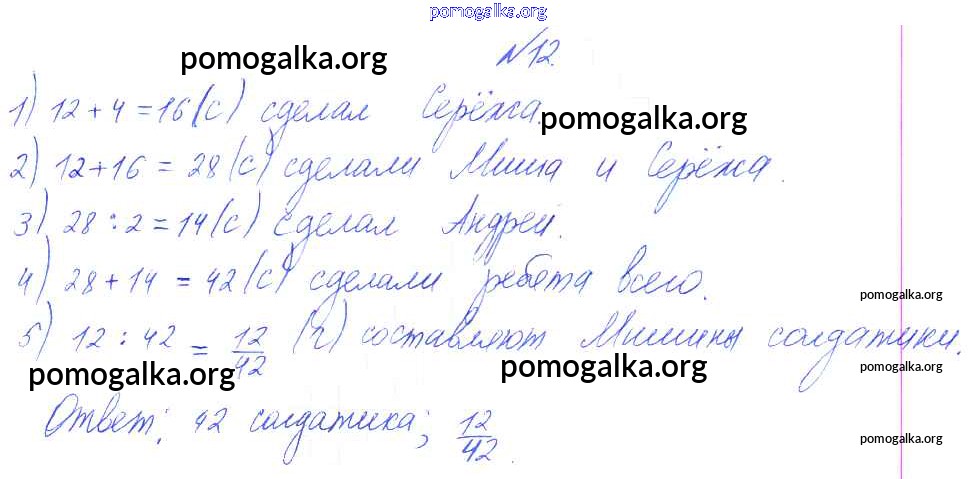 pomogalka.org
№12.
pomogalka.org
1) 12 + 4 = 16 (с) сделал Серёжа.
pomogalka.org
2) 12 + 16 = 28 (с) сделали Миша и Серёжа.
3) 28 : 2 = 14 (с) сделал Андрей.
4) 28 + 14 = 42 (с) сделали ребята всего.
pomogalka.org
5) 12 : 42 = 12/42 (ч) составляют Мишины солдатики.
pomogalka.org
pomogalka.org
pomogalka.org
Ответ: 42 солдатика; 12/42.
pomogalka.org